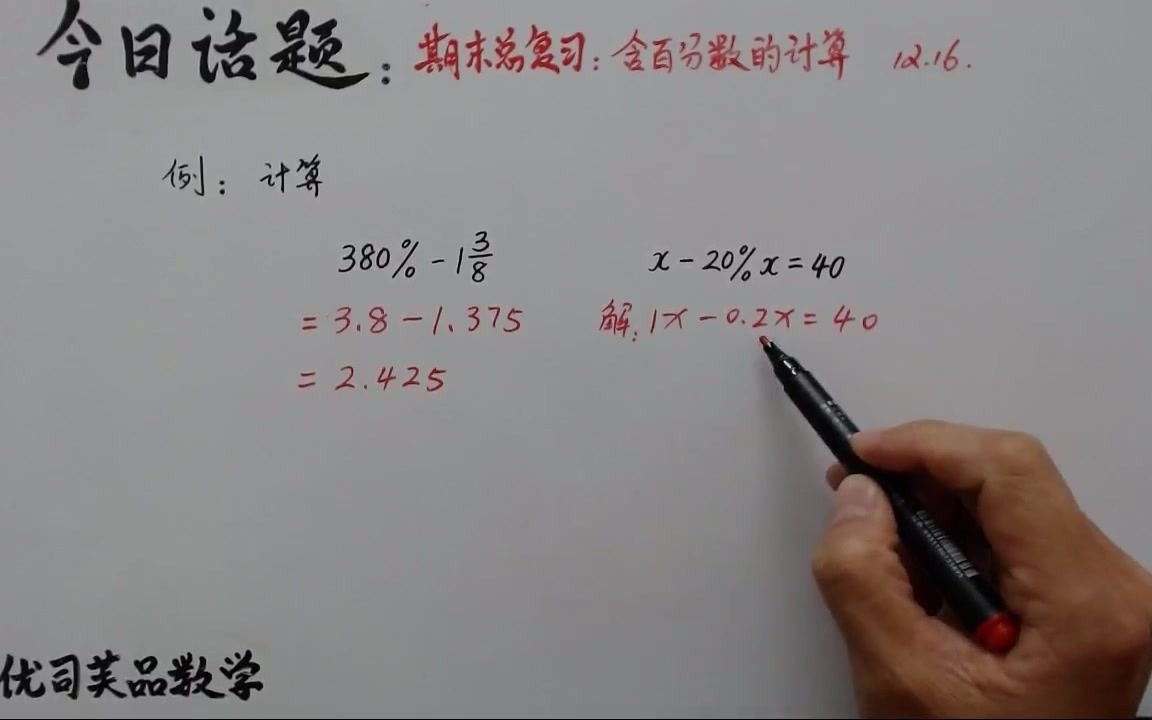 今日话题：期末总复习：含百分数的计算 12.16.
例：计算
380% - 1 3/8
= 3.8 - 1.375
= 2.425
x - 20% x = 40
解：1x - 0.2x = 40
优司芙品数学